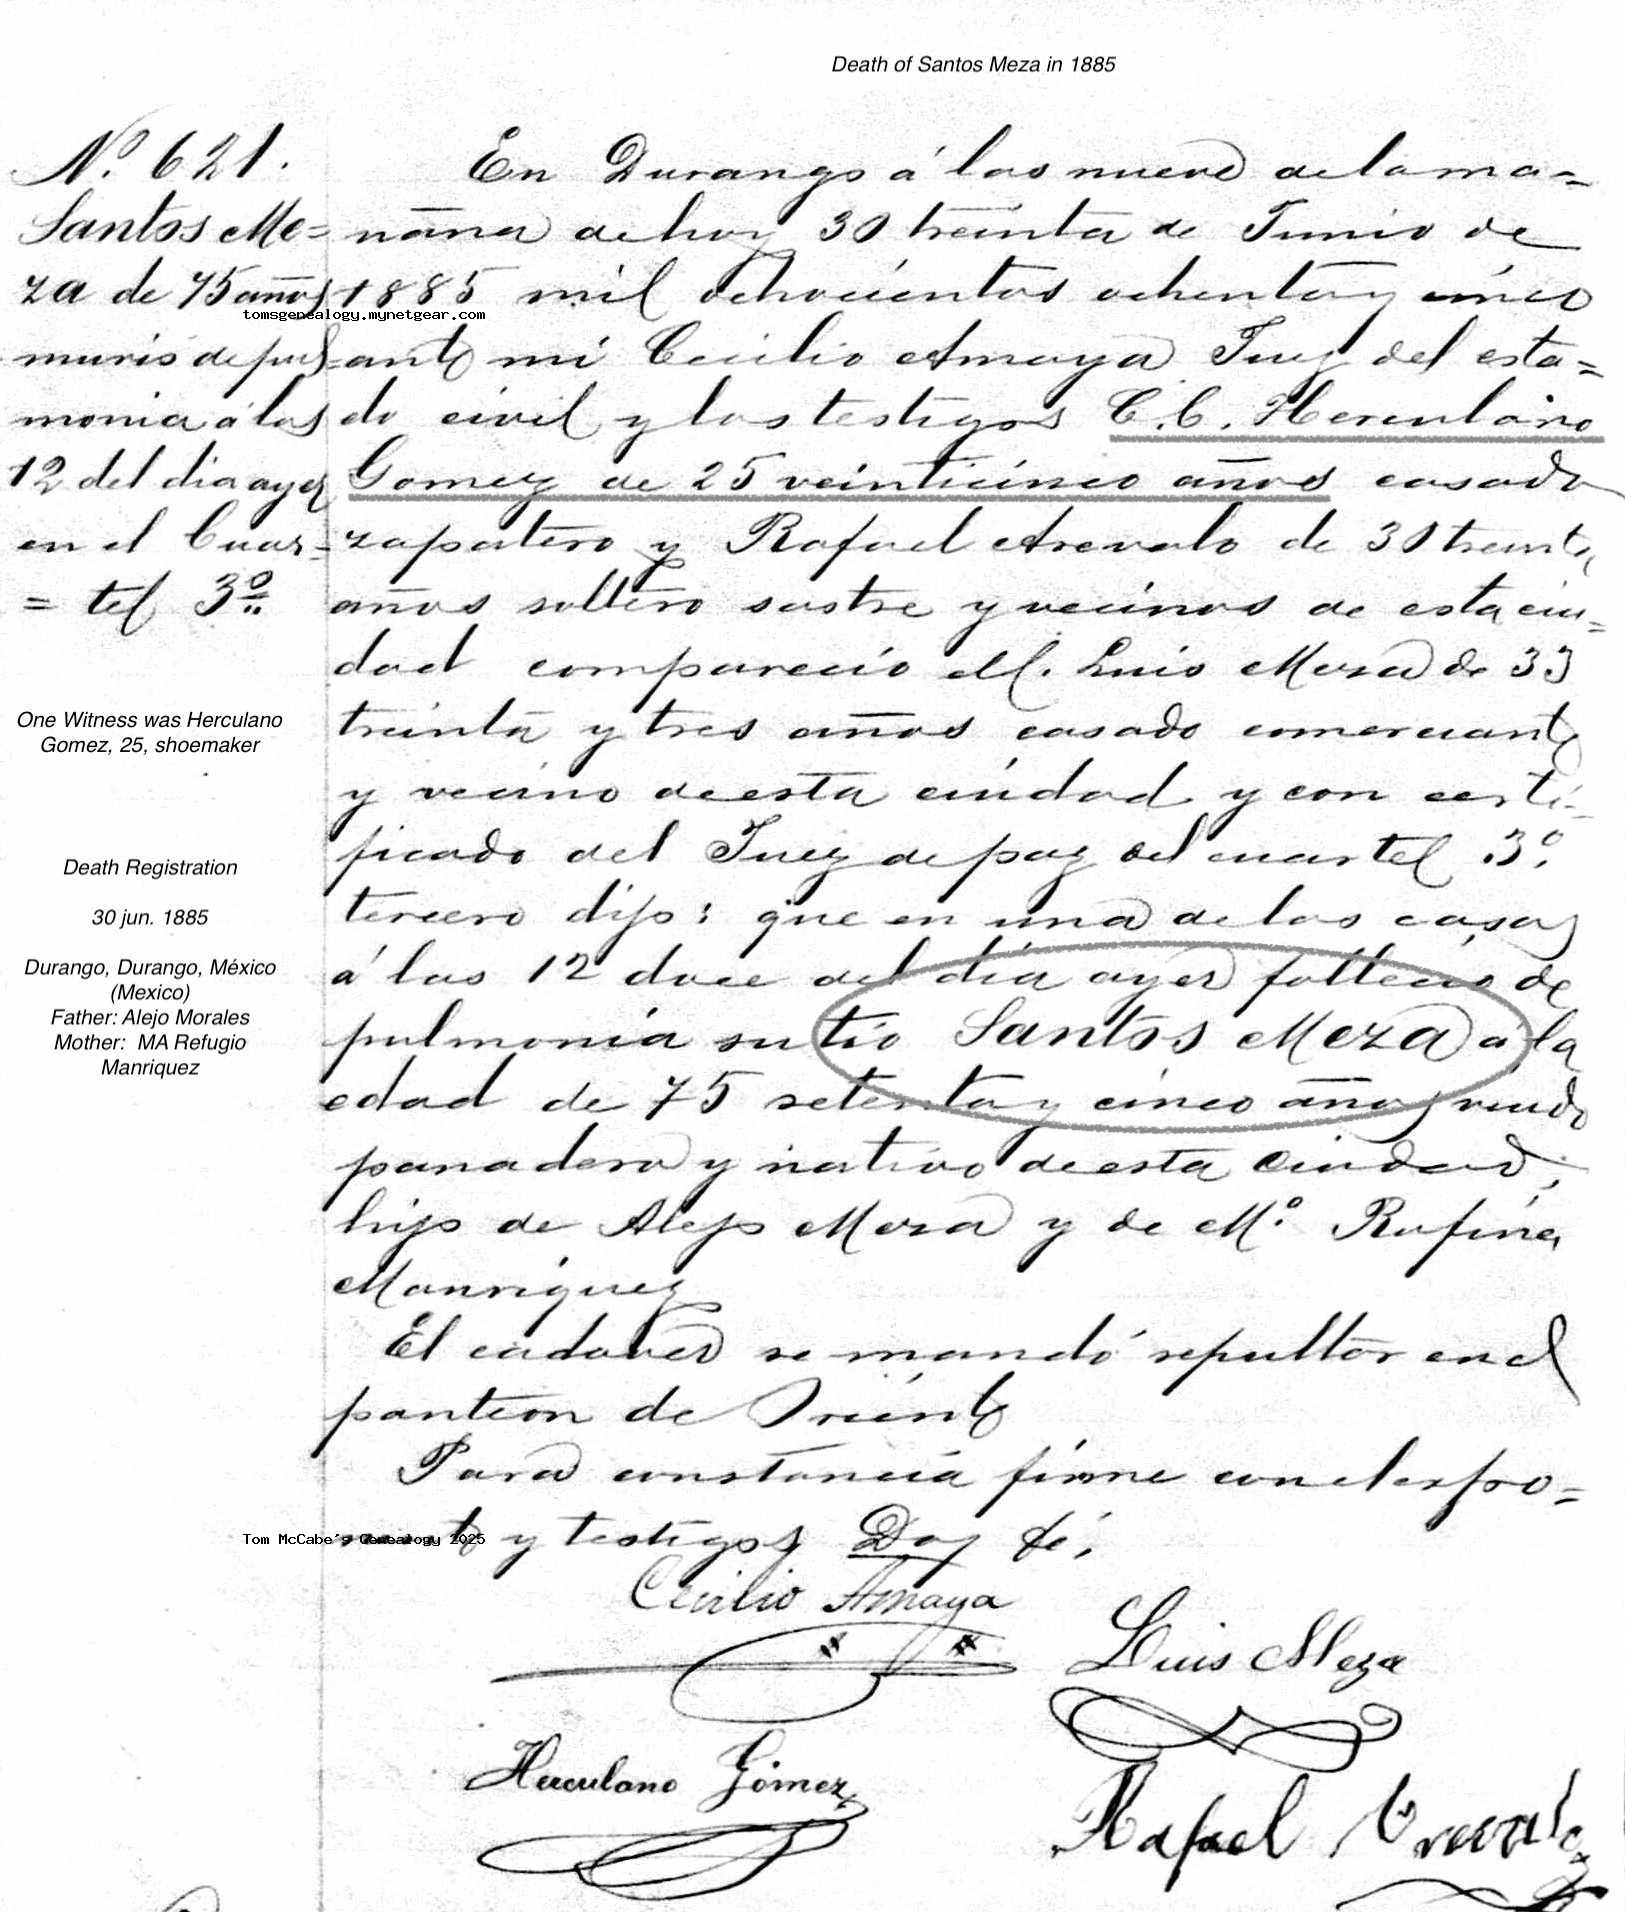 Death of Santos Meza in 1885
No. 621.
Santos Me=
za de 75 años
murio de pul
monia á las
12 del dia ayer
en el Cuar=
=tel 3º
One Witness was Herculano
Gomez, 25, shoemaker
Death Registration
30 jun. 1885
Durango, Durango, México
(Mexico)
Father: Alejo Morales
Mother: MA Refugio
Manriquez
En Durango á las nueve de la ma=
ñana de hoy 30 treinta de Junio de
1885 mil ochocientos ochenta y cinco
tomsgenealogy.mynetgear.com
ante mi Cecilio Amaya Juez del esta=
do civil y los testigos C.C. Herculano
Gomez de 25 veinticinco años casado
zapatero y Rafael Arevalo de 30 treinta
años soltero sastre y vecinos de esta ciu=
dad comparecio el C. Luis Meza de 33
treinta y tres años casado comerciante
y vecino de esta ciudad y con certi=
ficado del Juez de paz del cuartel 3º.
tercero dijo: que en una de las casas
á las 12 doce del dia ayer fallecio de
pulmonia su tio Santos Meza á la
edad de 75 setenta y cinco años viudo
panadero y nativo de esta Ciudad,
hijo de Alejo Meza y de Mª. Rufina
Manriquez
El cadaver se mandó repultar en el
panteon de Oriente
Para constancia firme con el espo=
nente y testigos Doy fé.
Tom McCabe's Genealogy 2025
Cecilio Amaya
Luis Meza
Herculano Gómez
Rafael Arevalo